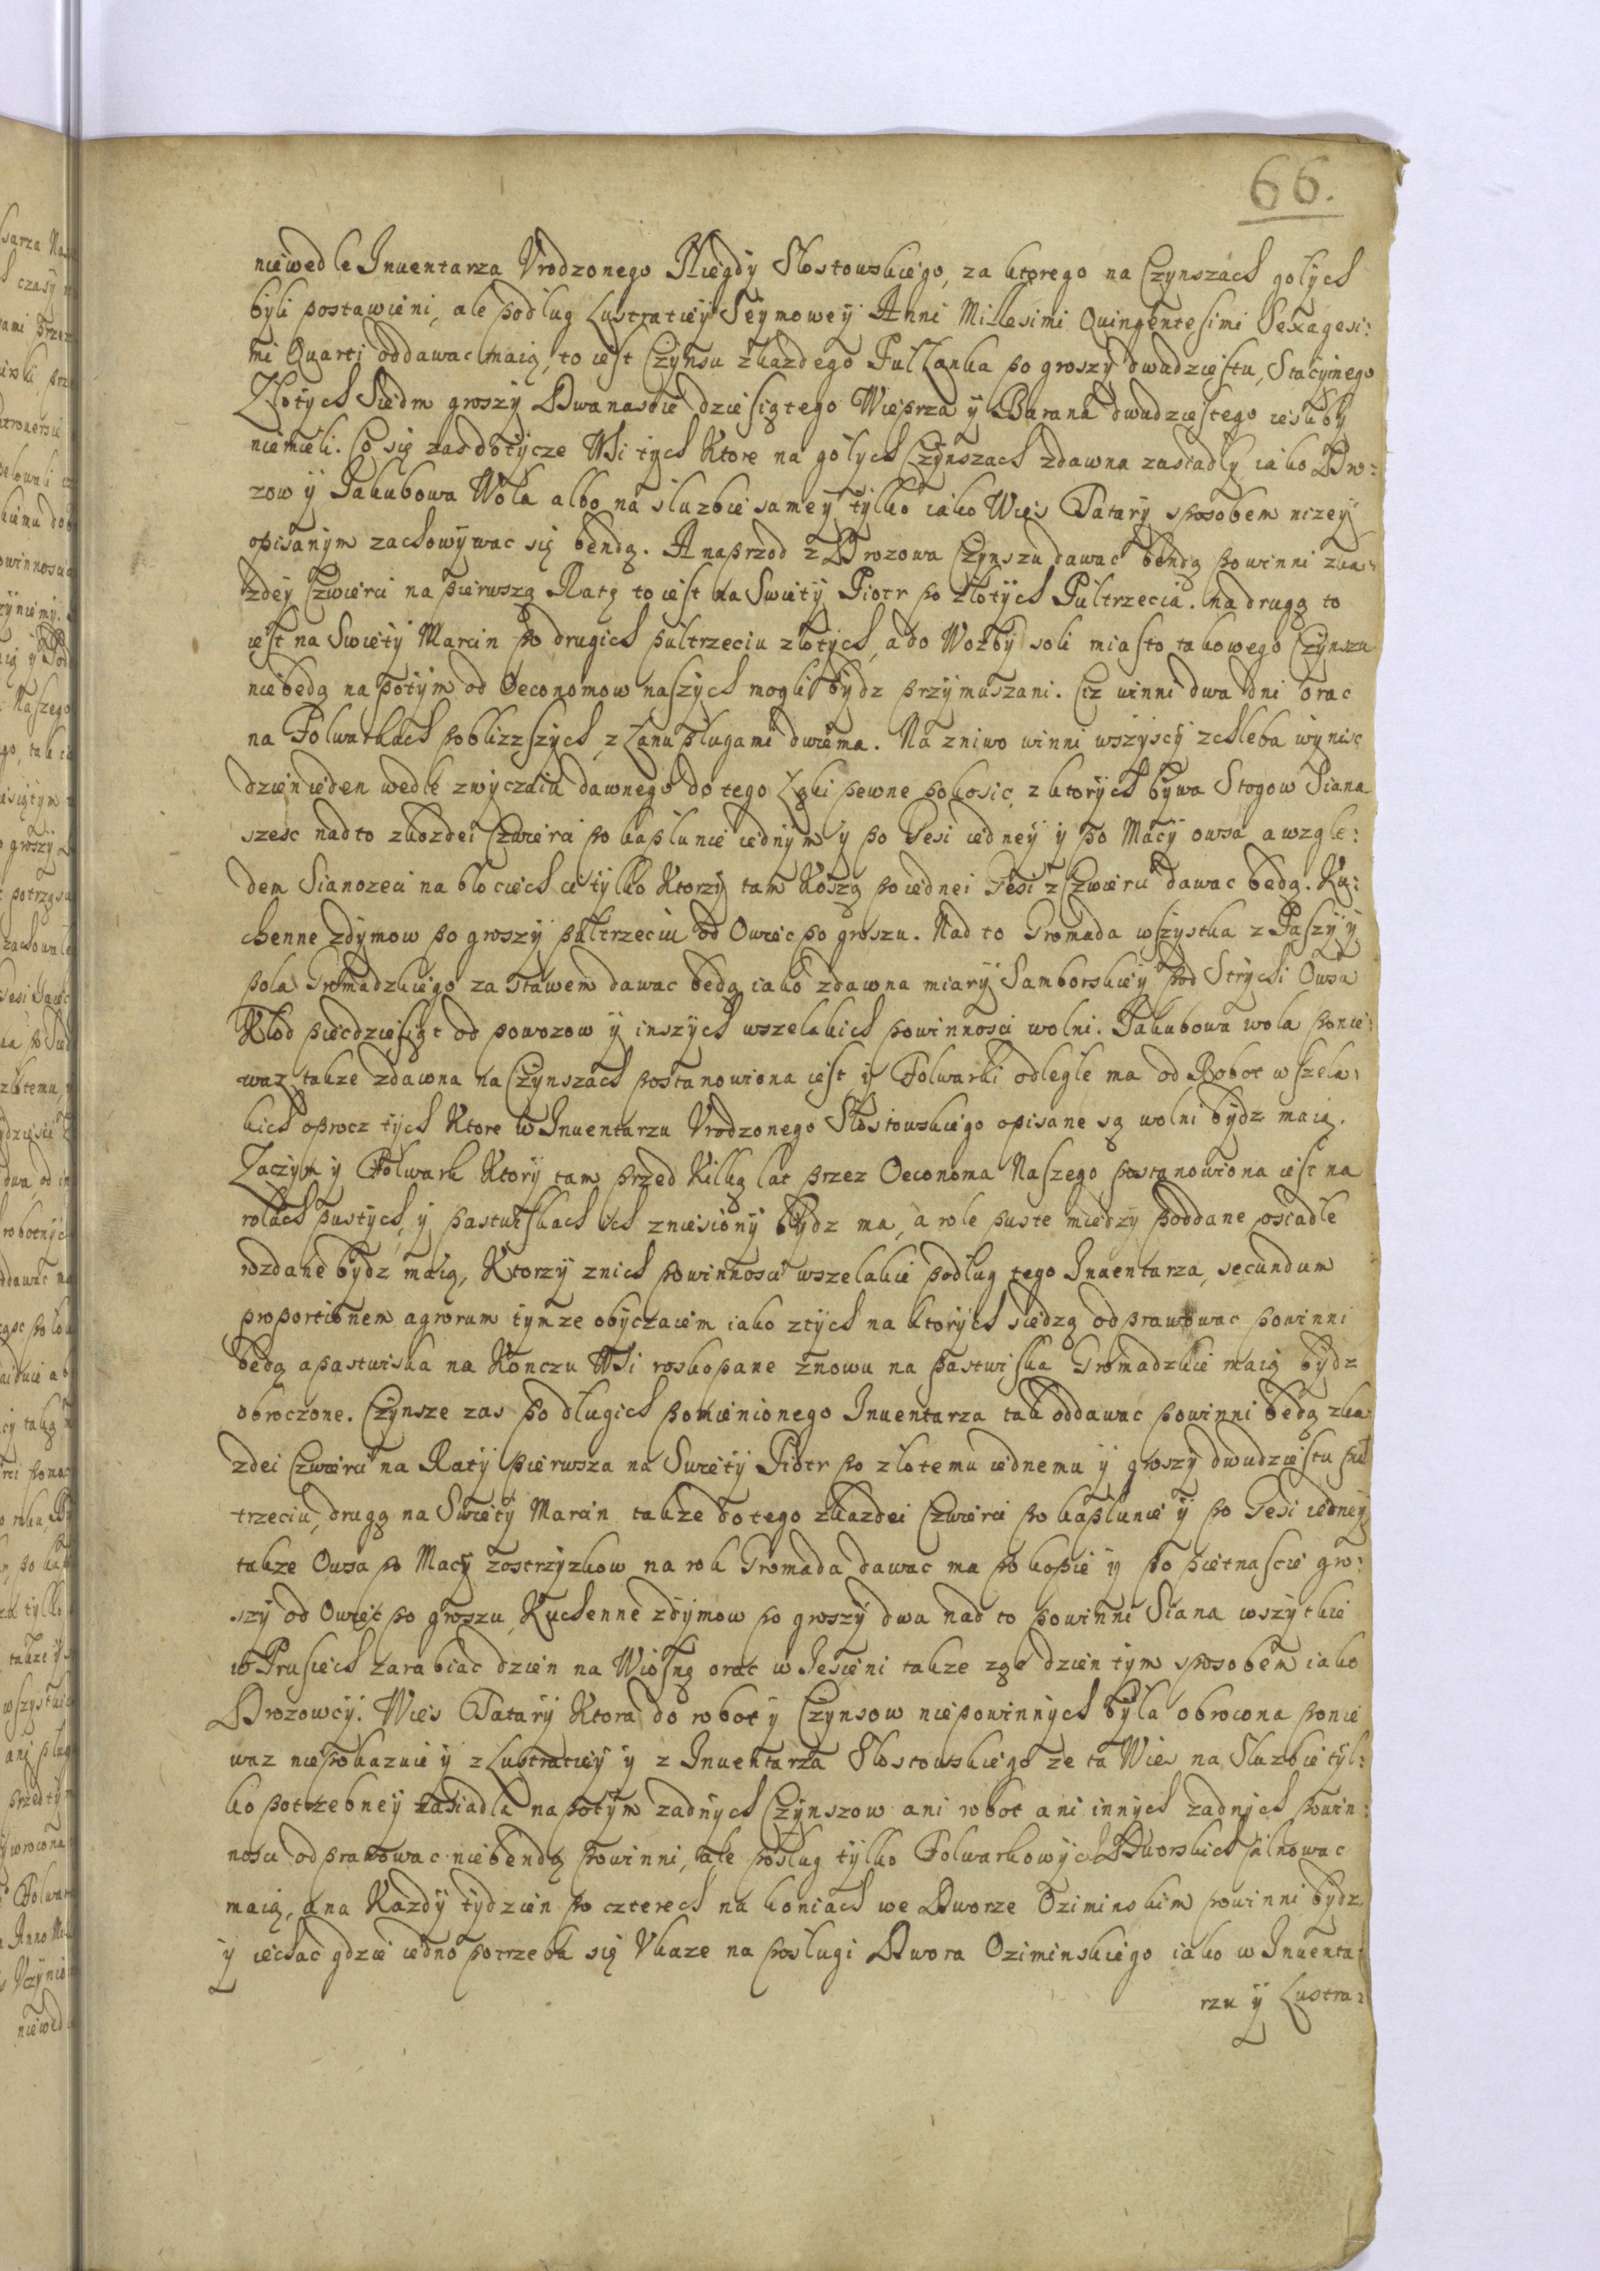 66.
niewedle Inuentarza Vrodzonego Niegdy Słostowskiego, za ktorego na Czynszach gołych
byli postawieni, ale podług Lustratiey Seymowey Anni Millesimi Quingentesimi Sexagesi:
mi Quarti oddawac maią, to iest Czynsu zkazdego Pułłanka po groszy dwudziestu, Stacyinego
Złotych Siedm groszy Dwanascie dziesiątego Wieprza y Barana dwudziestego iesliby
niemieli. Co się zas dotycze Wsi tych Ktore na gołych Czynszach zdawna zasiadły iako Dro:
zow y Iakubowa Wola albo na słuzbie samey tylko iako Wies Tatary sposobem nizey
opisanym zachowywac się bendą. A naprzod z Drozowa Czynszu dawac bendą powinni zka:
zdey Czwierci na pierwszą Ratę to iest na Swięty Piotr po złotych Pułtrzecia. na drugą to
iest na Swięty Marcin po drugich pułtrzeciu złotych, a do Wozby soli miasto takowego Czynszu
niebędą napotym od Oeconomow naszych mogli bydz przymuszani. Ciz winni dwa dni orac
na Folwarkach poblizszych, z Łanu pługami dwiema. Na zniwo winni wszyscy zchleba wynisc
dzien ieden wedle zwyczaiu dawnego do tego Łąki pewne pokosic, z ktorych bywa Stogow Siana
szesc nadto zkozdei Czwierci po kapłunie iednym y po Gesi iedney y po Macy owsa a wzglę:
dem Sianozeci na błociech ci tylko Ktorzy tam Koszą po iednei Gesi z Czwierci dawac będą. Ku:
chenne zdymow po groszy pułtrzeciu od Owiec po groszu. Nad to Gromada wszystka z Paszy y
pola Gromadzkiego za stawem dawac będą iako zdawna miary Samborskiey pod Strychi Owsa
Kłod piecdziesiąt od powozow y inszych wszelakich powinnosci wolni. Iakubowa wola ponie:
waz takze zdawna na Czynszach postanowiona iest y Folwarki odległe ma od Robot wszela:
kich oprocz tych Ktore w Inuentarzu Vrodzonego Słostowskiego opisane są wolni bydz maią.
Zaczym y Folwark Ktory tam przed Kilką lat przez Oeconoma Naszego postanowiona iest na
rolach pustych, y pastwiskach ich zniesiony bydz ma, a role puste miedzy poddane osiadłe
rozdane bydz maią, Ktorzy znich powinnosci wszelakie podług tego Inuentarza, secundum
proportionem agrorum tymze obyczaiem iako ztych na ktorych siedzą odprawowac powinni
będą a pastwiska na Konczu Wsi roskopane znowu na pastwiska Gromadzkie maią bydz
obroczone. Czynsze zas podługich pomienionego Inuentarza tak oddawac powinni będą zka
zdei Czwierci na Raty pierwsza na Swięty Piotr po złotemu iednemu y groszy dwudziestu puł
trzeciu, drugą na Swięty Marcin takze do tego zkazdei Czwierci po kapłunie y po Gesi iedney
takze Owsa po Macy zostrzyzkow na rok Gromada dawac ma po kopie y po pietnascie gro:
szy od Owiec po groszu, Kuchenne zdymow po groszy dwa nad to powinni Siana wszytkie
w Prusiech zarabiac dzien na Wiosnę orac w Iesieni takze zgo dzien tym sposobem iako
Drozowcy. Wies Tatary Ktora do robot y Czynsow niepowinnych była obrocona ponie
waz niepokazuie y z Lustratiey y z Inuentarza Słostowskiego ze ta Wies na Słuzbie tyl:
ko potrzebney zasiadła napotym zadnych Czynszow ani robot ani innych zadnych powin:
nosci odprawowac niebendą powinni, ale posług tylko Folwarkowych Dworskich pilnowac
maią, a na Kazdy tydzien po czterech na koniach we Dworze Oziminskim powinni bydz
y iechac gdzie iedno potrzeba się Vkaze na posługi Dwora Oziminskiego iako w Inuenta:
rzu y Lustra: